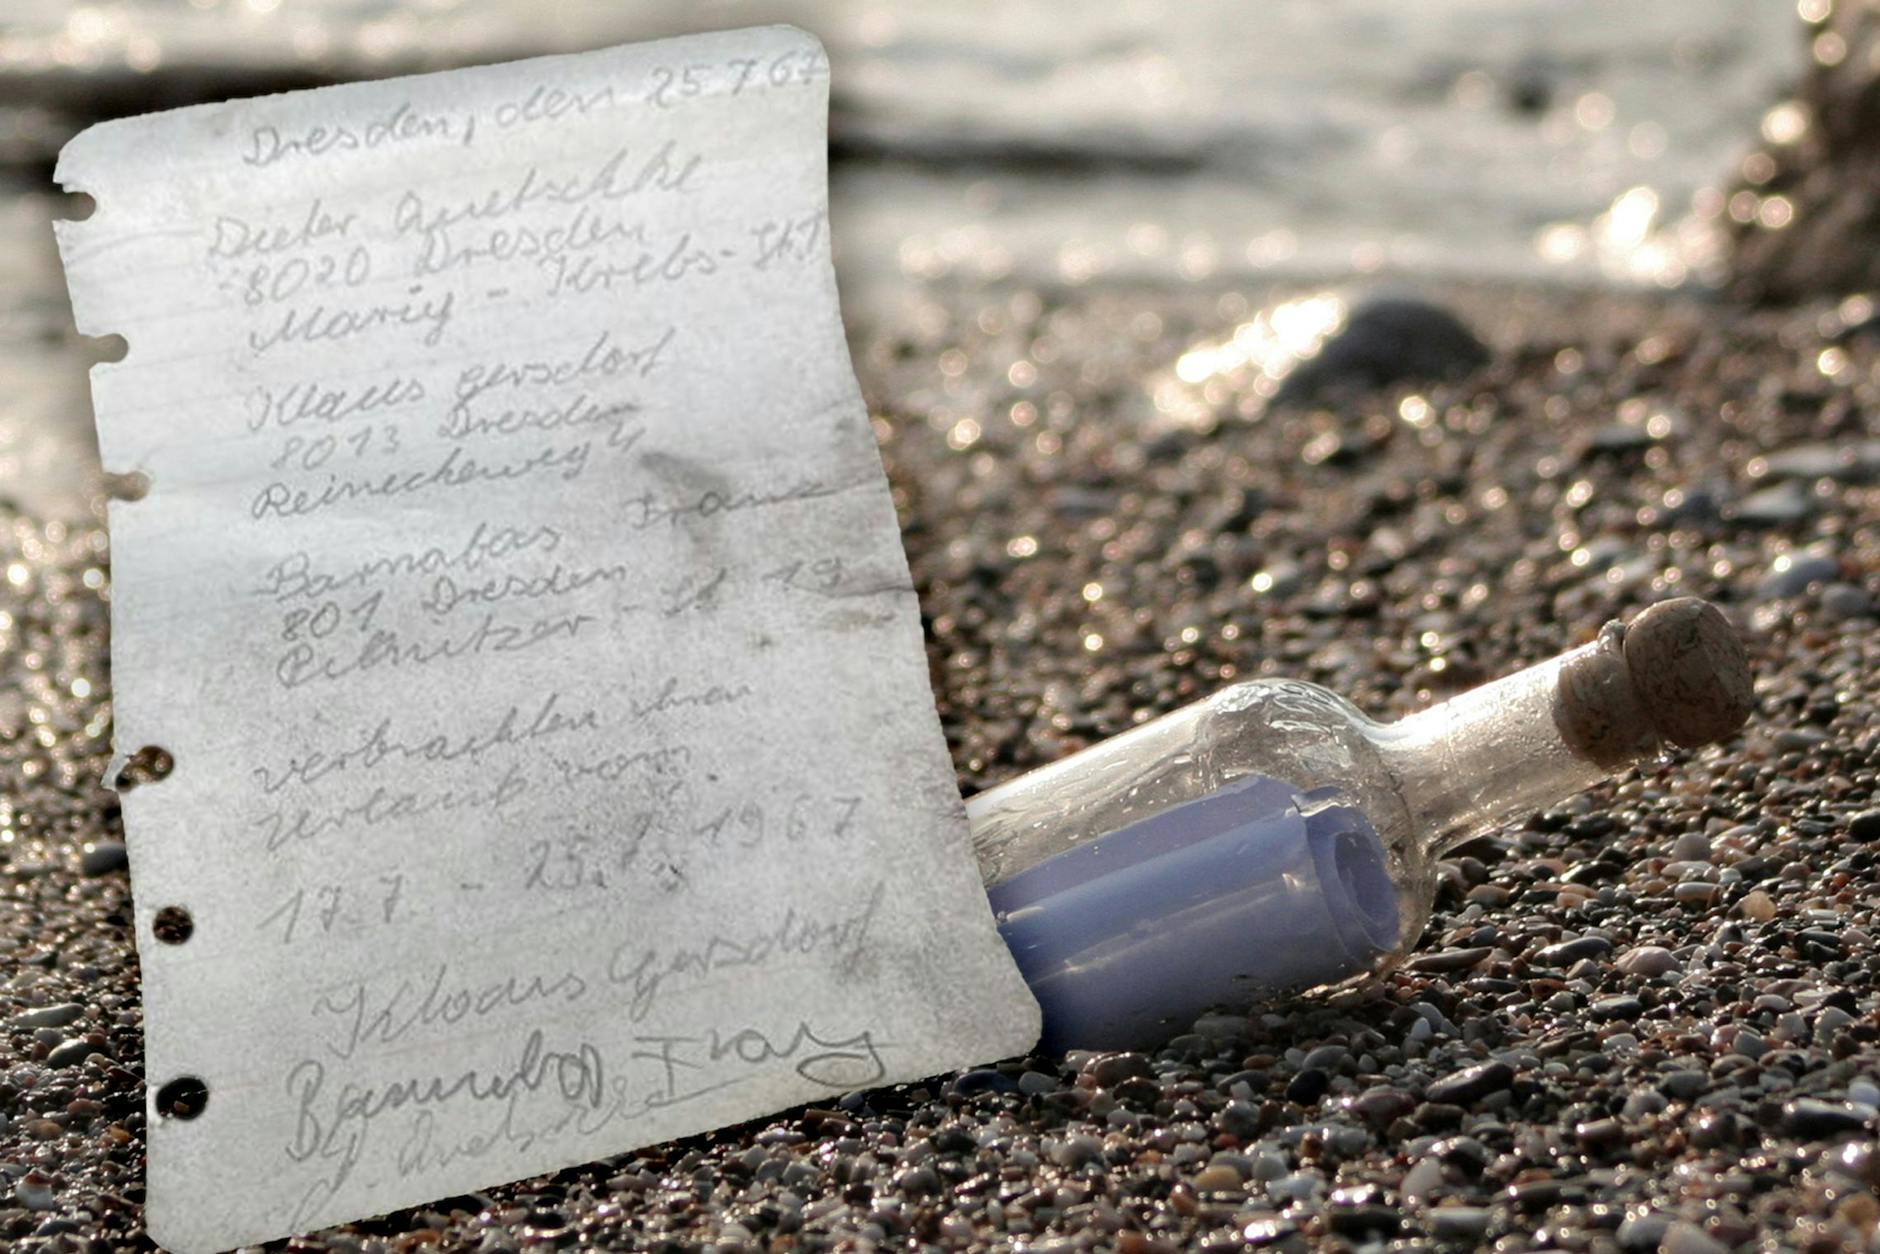 Dresden, den 25.7.67
Dieter Quetschke
8020 Dresden
Mariy-Krebs-Str. 7
Klaus Gersdorf
8013 Dresden
Reineckeweg 4
Barnabas Franz
801 Dresden
Pillnitzer-St 19
verbrachten ihren
Urlaub vom
17.7. - 25.7. 1967
Klaus Gersdorf
Barnabas Franz